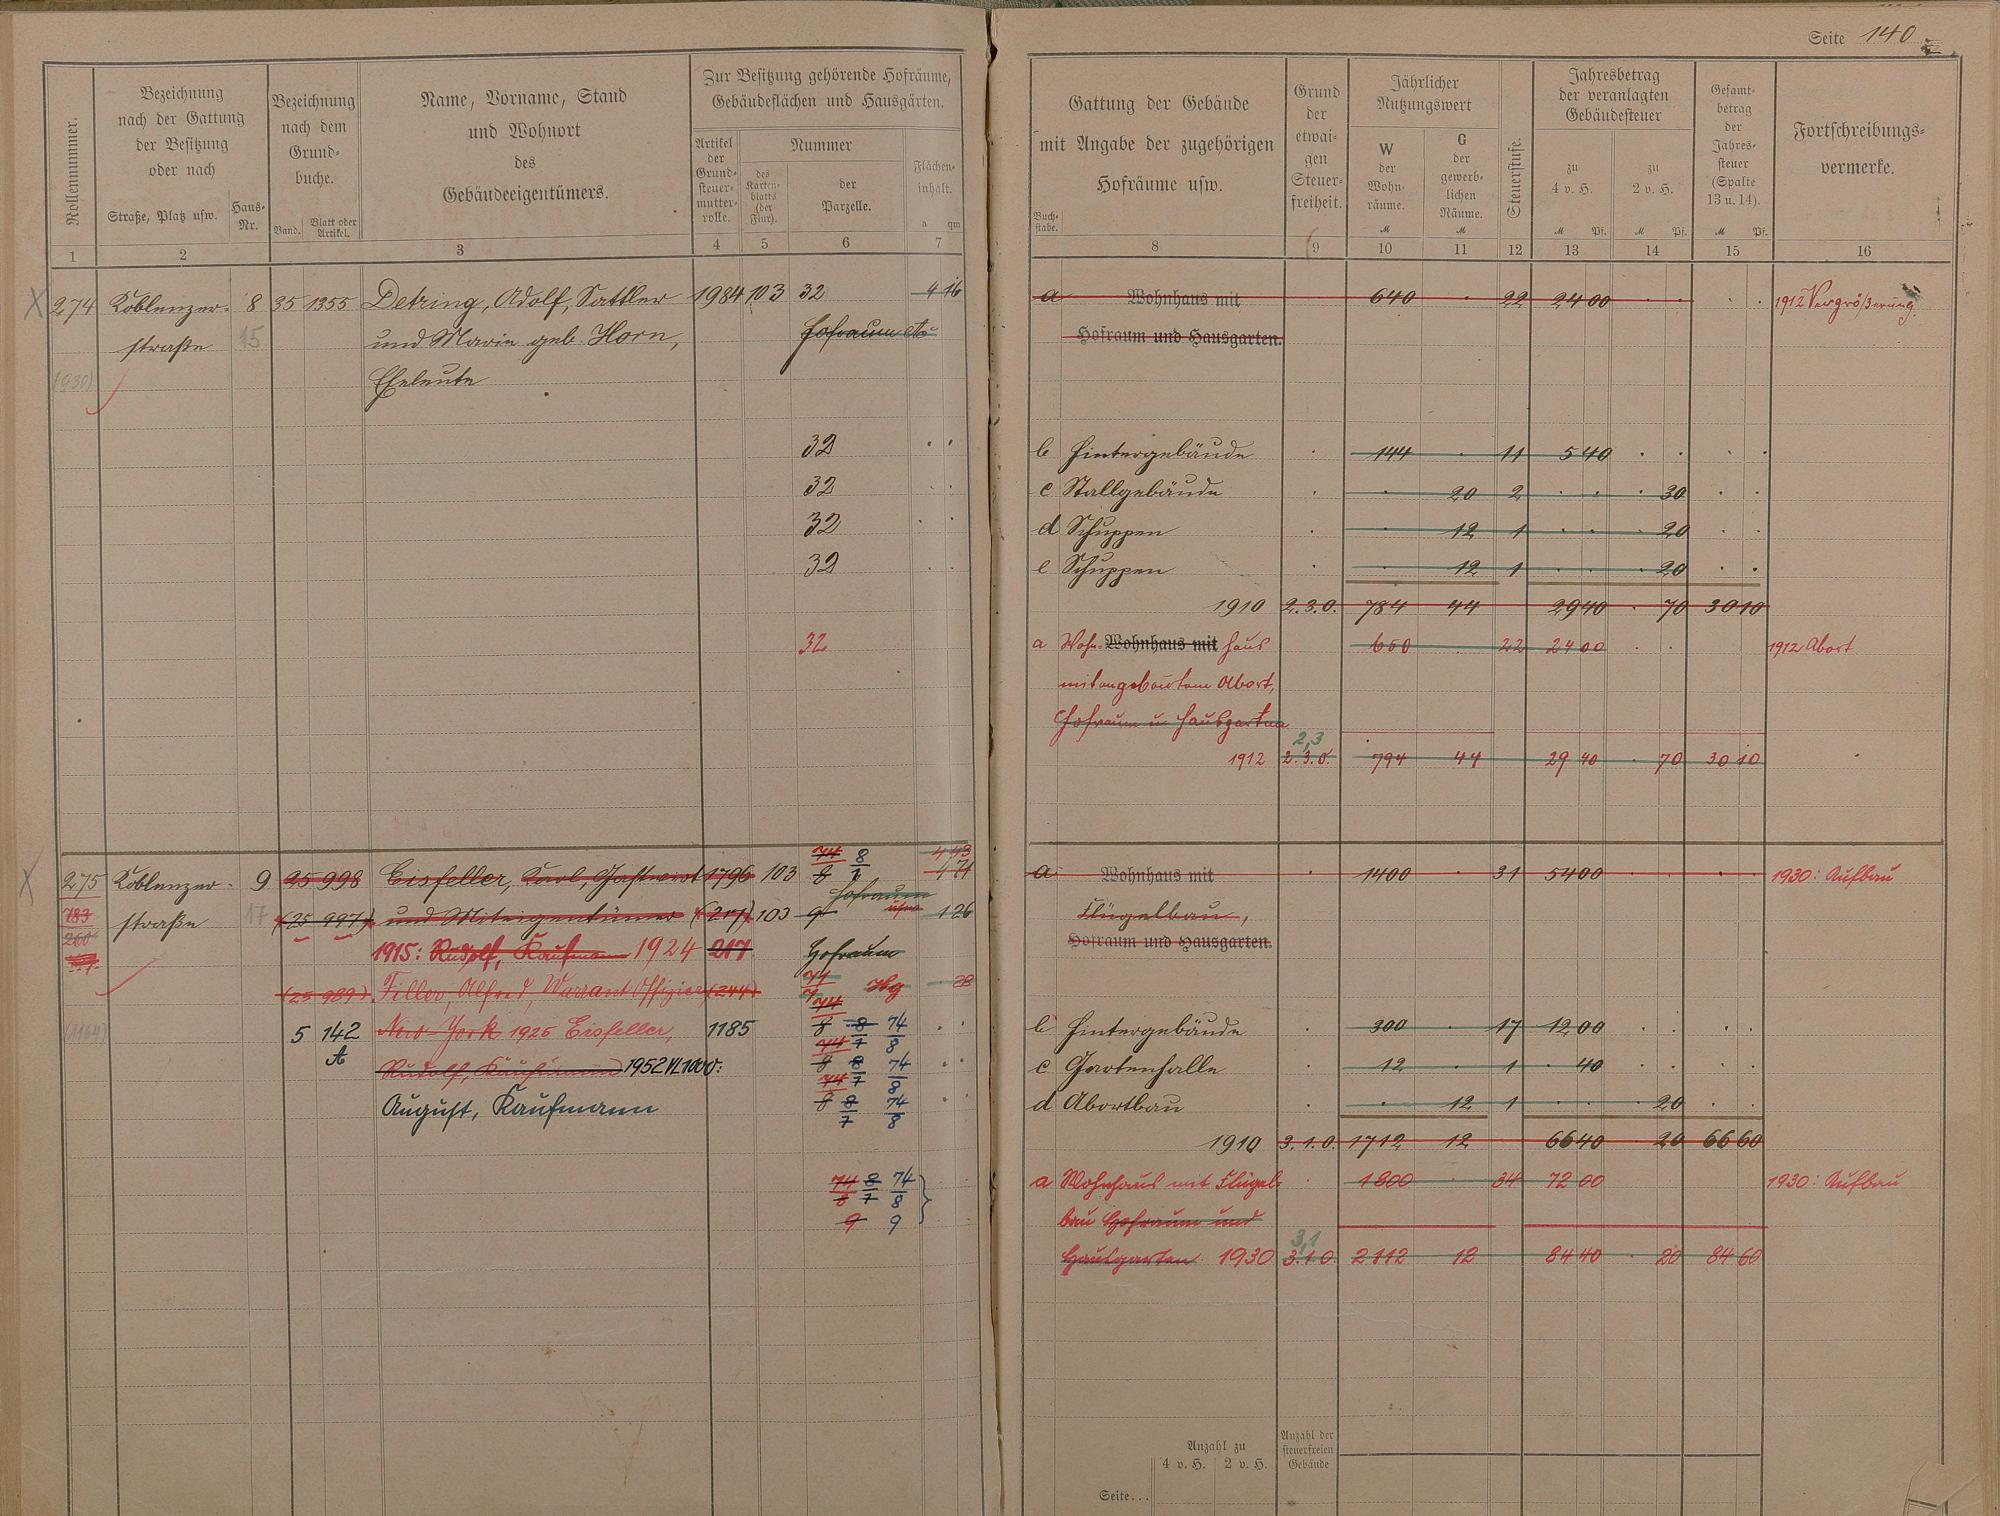 Seite 140
Rollennummer.
Bezeichnung
nach der Gattung
der Besitzung
oder nach
Straße, Platz usw.
Haus-
Nr.
Bezeichnung
nach dem
Grund-
buche.
Band.
Blatt oder
Artikel.
Name, Vorname, Stand
und Wohnort
des
Gebäudeeigentümers.
Zur Besitzung gehörende Hofräume,
Gebäudeflächen und Hausgärten.
Artikel
der
Grund-
steuer-
mutter-
rolle.
Nummer
des
Karten-
blatts
(der
Flur).
der
Parzelle.
Flächen-
inhalt.
a qm
1 2 3 4 5 6 7
Buch-
stabe.
Gattung der Gebäude
mit Angabe der zugehörigen
Hofräume usw.
Grund
der
etwai-
gen
Steuer-
freiheit.
Jährlicher
Nutzungswert
W
der
Wohn-
räume.
M
G
der
gewerb-
lichen
Räume.
M
Steuerstufe.
Jahresbetrag
der veranlagten
Gebäudesteuer
zu
4 v. H.
M Pf.
zu
2 v. H.
M Pf.
Gesamt-
betrag
der
Jahres-
steuer
(Spalte
13 u. 14).
M Pf.
Fortschreibungs-
vermerke.
8 9 10 11 12 13 14 15 16
X 274 Koblenzer- 8 35 1355 Detring, Adolf, Sattler 1984 103 32 4 16
straße 15 und Marie geb. Horn, Hofraum etc
(930) Eheleute
32
32
32
32
32
a Wohnhaus mit 640 22 24 00 1912 Vergrößerung.
Hofraum und Hausgarten.
b Hintergebäude 144 11 5 40
c Stallgebäude 20 2 30
d Schuppen 12 1 20
e Schuppen 12 1 20
1910 2.3.0. 784 44 29 40 70 30 10
a Wohn- Wohnhaus mit haus 650 22 24 00 1912 Abort
mit angebautem Abort,
Hofraum u Hausgarten
2,3
1912 2.3.0. 794 44 29 40 70 30 10
X 275 Koblenzer- 9 25 998 Eisfeller, Karl, Gastwirt 1796 103 74/8 8/7 4 71
4 43
783 straße 17 (25 997) und Miteigentümer (217) 103 9 Hofraum usw 1 26
260
1915: Rudolf, Kaufmann 1924 217 Hofraum
(25 989) Filler, Alfred, Warrant Offizier (244) Hg 28
(1164) 5 142 New-York 1925 Eisfeller, 1185 74/8 8/7 74/8
A Rudolf, Kaufmann 1952 VI. 1000: 74/8 8/7 74/8
August, Kaufmann 74/8 8/7 74/8
74/8 8/7 74/8
9 9
a Wohnhaus mit 1400 31 54 00 1930: Aufbau
Flügelbau,
Hofraum und Hausgarten.
b Hintergebäude 300 17 12 00
c Gartenhalle 12 1 40
d Abortbau 12 1 20
1910 3.1.0. 1712 12 66 40 20 66 60
a Wohnhaus mit Flügel- 1800 34 72 00 1930: Aufbau
bau Hofraum und
3,1
Hausgarten 1930 3.1.0. 2112 12 84 40 20 84 60
Anzahl zu
4 v. H. 2 v. H.
Anzahl der
steuerfreien
Gebäude
Seite...